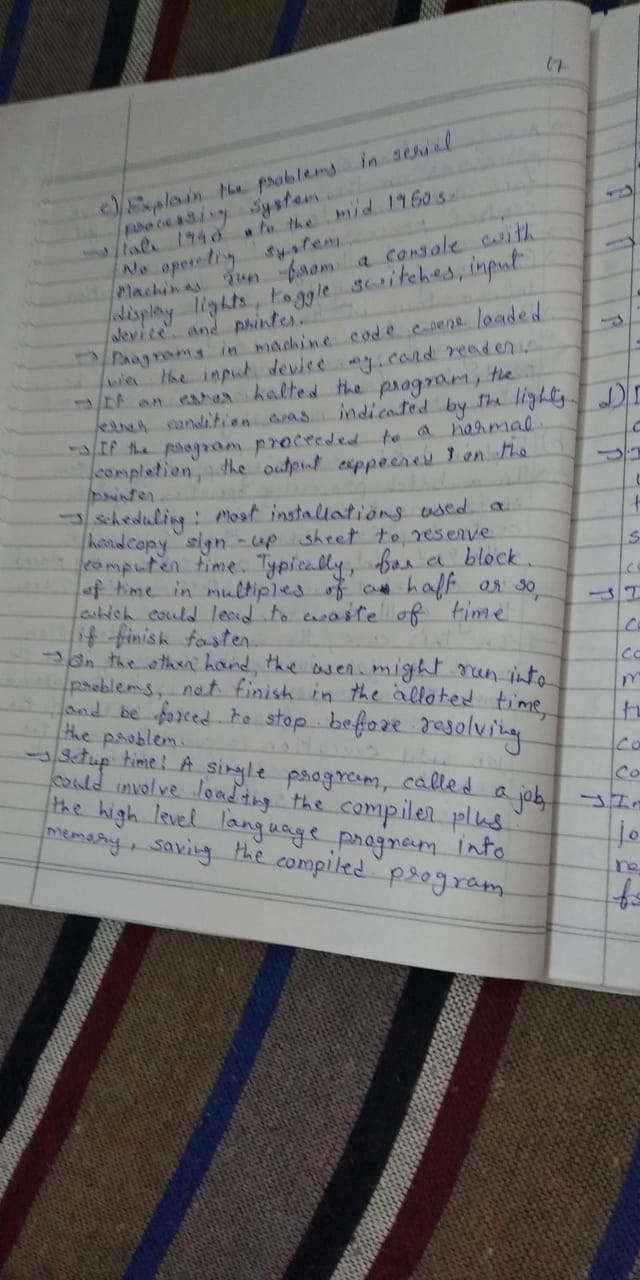 17
c) Explain the problems in serial
processing system.
→ late 1940 to the mid 1960s
No operatig system.
Machines run from a console with
display lights, toggle switches, input
device and printer.
→ Programs in machine code were loaded
via the input device eg. card reader.
→ If an error halted the program, the
error condition was indicated by the lights.
→ If the program proceeded to a normal
completion, the output appeared on the
printer.
→ Scheduling: Most installations used a
hardcopy sign-up sheet to reserve
computer time. Typically, for a block
of time in multiples of a half or so,
which could lead to waste of time
if finish faster.
→ On the other hand, the user might run into
problems, not finish in the alloted time,
and be forced to stop before resolving
the problem.
→ Setup time: A single program, called a job,
could involve loading the compiler plus
the high level language program into
memory, saving the compiled program
→
→
→
d)
→ I
→ I
co
co
m
co
co
→ In
jo
re
fo